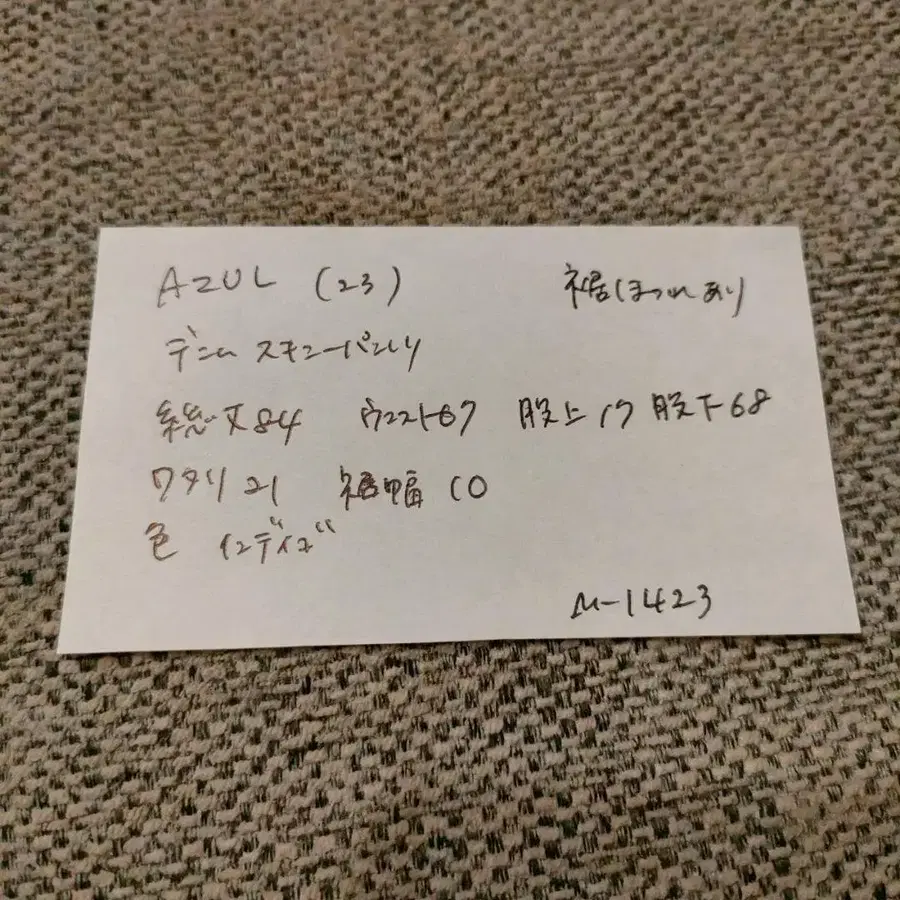 AZUL (23) 裾ほつれあり
デニム スキニーパンツ
総丈84 ウエスト67 股上17 股下68
ワタリ21 裾幅10
色 インディゴ
M-1423